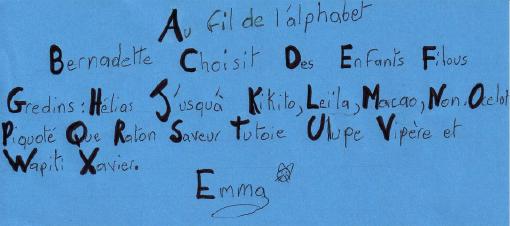 Au fil de l'alphabet
Bernadette Choisit Des Enfants Filous
Gredins : Hélias J'usquà Kikito, Leïla, Macao, Non. Ocelot
Piquoté Que Raton Saveur Tutoie Ulupe Vipère et
Wapiti Xavier.
Emma